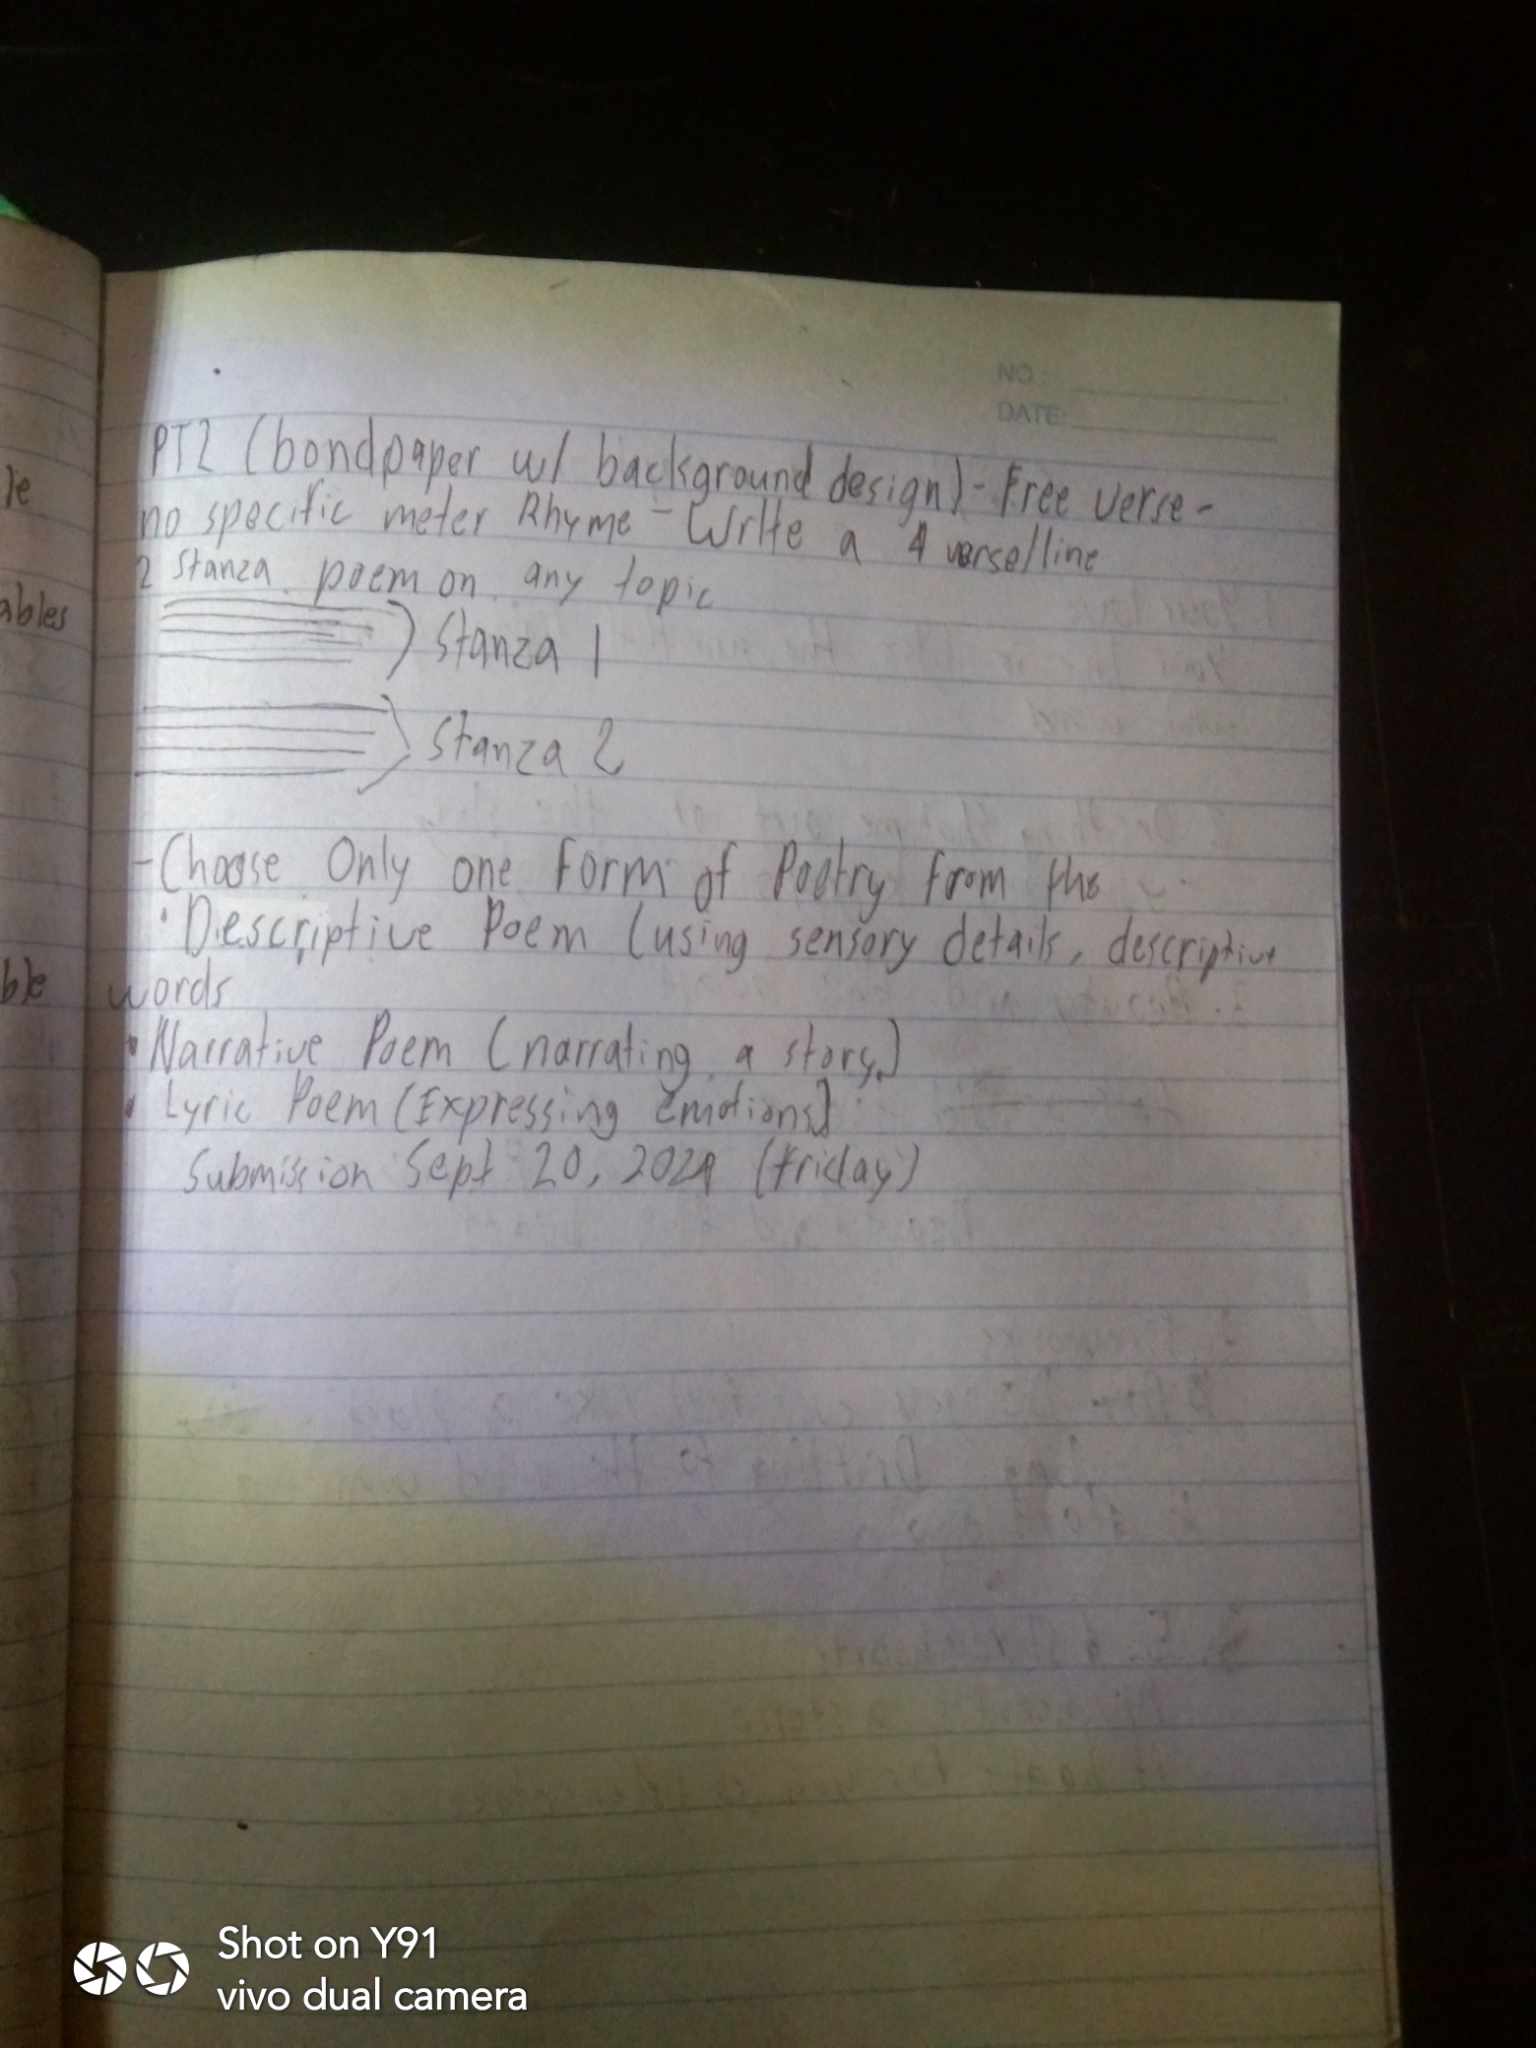 NO :
DATE:
PT2 (bondpaper w/ background design) - Free verse -
no specific meter Rhyme - Write a 4 verse/line
2 stanza poem on any topic
Stanza 1
Stanza 2
- Choose Only one form of Poetry from the
• Descriptive Poem (using sensory details, descriptive
words
• Narrative Poem (narrating a story.)
• Lyric Poem (Expressing Emotions)
Submission Sept 20, 2024 (friday)
le
ables
ble
Shot on Y91
vivo dual camera